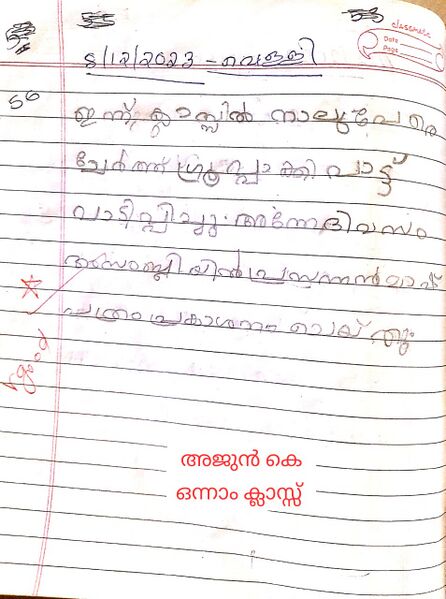 classmate
Date
Page
8/12/2023 - വെള്ളി
56
ഇന്ന് ക്ലാസ്സിൽ നാലുപേരെ
ചേർത്ത് ഗ്രൂപ്പാക്കി പാട്ട്
പാടിപ്പിച്ചു. അന്നേദിവസം
അസംബ്ലിയിൽ പ്രസന്നൻമാഷ്
പത്രം പ്രകാശനം ചെയ്തു.
good
അജുൻ കെ
ഒന്നാം ക്ലാസ്സ്